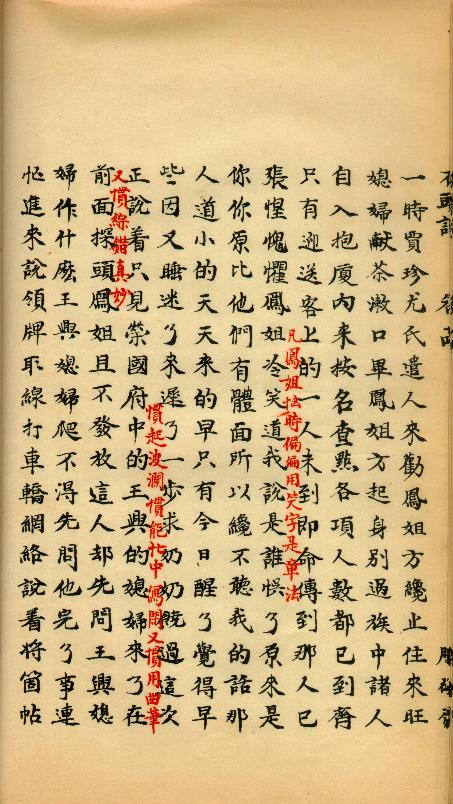 一時賈珍尤氏遣人來勸鳳姐方纔止住來旺
媳婦献茶漱口畢鳳姐方起身別過族中諸人
自入抱厦内来按名查㸃各項人數都已到齊
只有迎送客上的一人未到即命傳到那人已
凡鳳姐恼時偏偏用笑字是章法
張惶愧懼鳳姐冷笑道我說是誰悮了原來是
你你原比他們有體面所以纔不聽我的話那
人道小的天天來的早只有今日醒了覺得早
些因又睡迷了來遲了一步求奶奶饒過這次
慣起波瀾慣能忙中寫閑又慣用曲筆
又慣綜錯真妙
正說着只見榮國府中的王興的媳婦來了在
前面探頭鳳姐且不發放這人却先問王興媳
婦作什麽王興媳婦爬不得先問他完了事連
忙進來說領牌取線打車轎網絡說着將箇帖